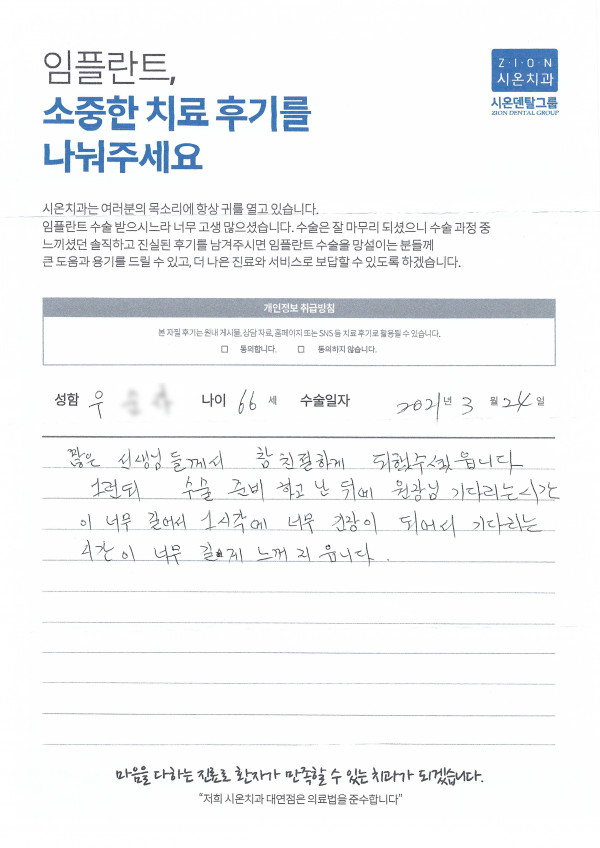 임플란트,
소중한 치료 후기를
나눠주세요
Z·I·O·N
시온치과
시온덴탈그룹
ZION DENTAL GROUP
시온치과는 여러분의 목소리에 항상 귀를 열고 있습니다.
임플란트 수술 받으시느라 너무 고생 많으셨습니다. 수술은 잘 마무리 되셨으니 수술 과정 중
느끼셨던 솔직하고 진실된 후기를 남겨주시면 임플란트 수술을 망설이는 분들께
큰 도움과 용기를 드릴 수 있고, 더 나은 진료와 서비스로 보답할 수 있도록 하겠습니다.
개인정보 취급방침
본 자필 후기는 원내 게시물, 상담 자료, 홈페이지 또는 SNS 등 치료 후기로 활용될 수 있습니다.
□ 동의합니다. □ 동의하지 않습니다.
성함 우 나이 66 세 수술일자 2021년 3 월 24 일
젊은 선생님들께서 참 친절하게
그런되 수술 준비 하고 난 뒤에 원장님 기다리는 시간
이 너무 길어서 그시각에 너무 긴장이 되어서 기다리는
시간이 너무 길게 느껴지 읍니다.
마음을 다하는 진료로 환자가 만족할 수 있는 치과가 되겠습니다.
“저희 시온치과 대연점은 의료법을 준수합니다”